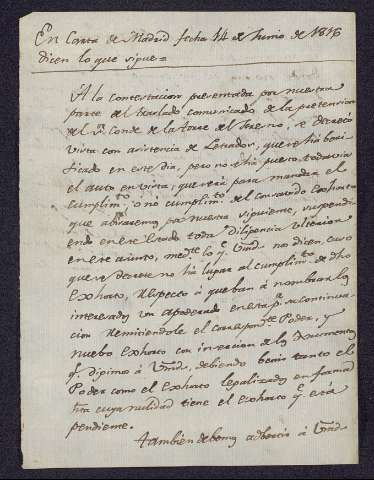 En Carta de Madrid fecha 14 de Junio de 1818
dicen lo que sigue =
A la contestacion presentada por nuestra
parte del traslado comunicado de la pretension
del Sr. Conde de la torre del fresno, se decretó
vista con asistencia de Letrados, que se há beri
ficado en este dia, pero no há puesto todavia
el auto en vista, que será para mandar el
cumplimto. ó nó cumplimto. del consavido exhorto
que abisaremos por nuestra siguiente, suspendi
endo en ese Estado toda diligencia ulterior
en este asunto, medte. lo q. Vmds. nos dicen, caso
que se decrete no há lugar al cumplimto. de dho
Exhorto, respecto á que ban á nombrar los
interesados un apoderado en esta pa. su continua-
cion remitiendole el correspondte. Poder, y
nuebo Exhorto con insercion de los Documentos
q. digimos á Vmds, debiendo benir tanto el
Poder como el Exhorto legalizados en forma
cuya nulidad tiene el Exhorto q. está
pendiente.
tambien debemos adbertir á Vmds